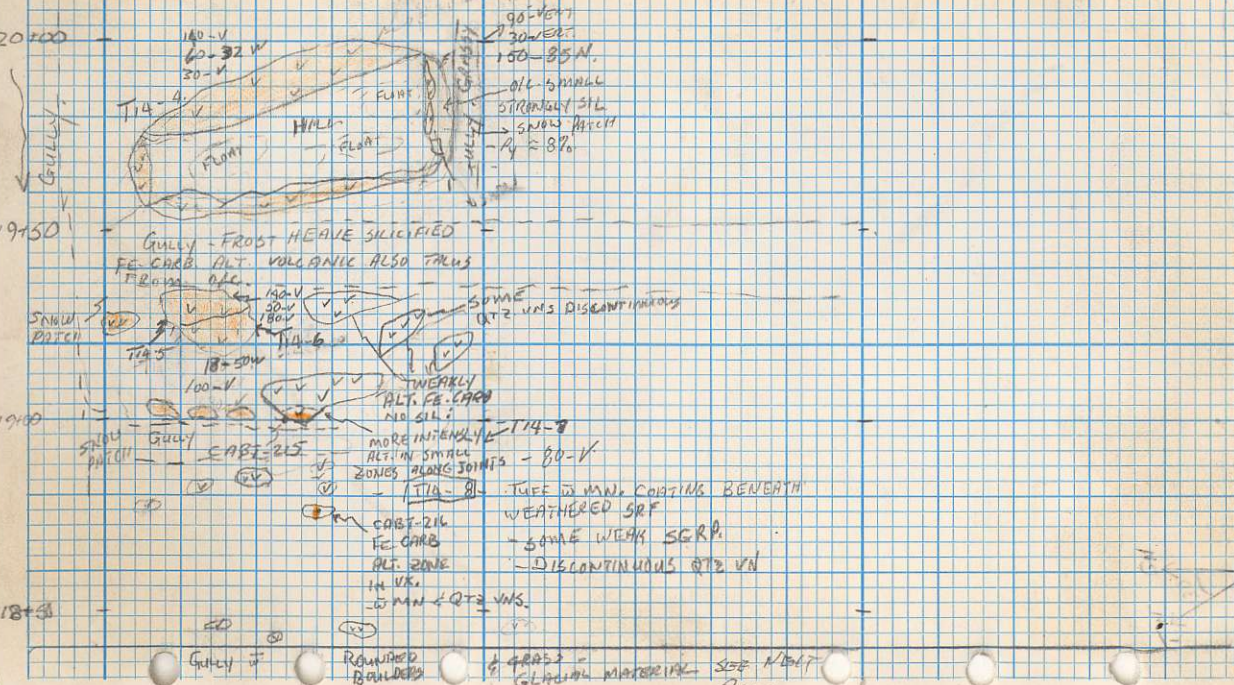 20+00
140-V
60-32 W
30-V
90-VERT
30-VERT.
150-85N.
GRASSY
GULLY
O/C SMALL
STRONGLY SIL
SNOW PATCH
- Py ≈ 8%
T14-4
FLOAT
HILL
FLOAT
FLOAT
GULLY
19+50
GULLY - FROST HEAVE SILICIFIED
FE-CARB ALT. VOLCANIC ALSO TALUS
FROM O/C.
140-V
180-V
SOME
QTZ VNS DISCONTINUOUS
SNOW
PATCH
T14-5
T14-6
18-50W
100-V
WEAKLY
ALT. FE-CARB
NO SIL.
19+00
SNOW
PATCH
GULLY
CABT-215
MORE INTENSLY
ALT. IN SMALL
ZONES ALONG JOINTS - 80-V
T14-7
T14-8 - TUFF w MN. COATING BENEATH
WEATHERED SRF
- SOME WEAK SGRP.
- DISCONTINUOUS QTZ VN
CABT-216
FE CARB
ALT. ZONE
IN VX.
- w MN & QTZ VNS.
18+50
GULLY w
ROUNDED
BOULDERS
& GRASS -
GLACIAL MATERIAL SEE NEXT